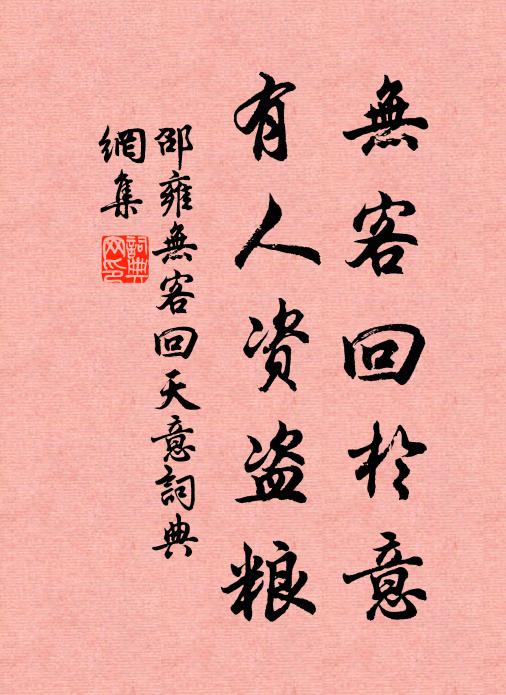 無客回於意
有人资盗粮
邵雍無客回天意詞典
網集
詞典
网印